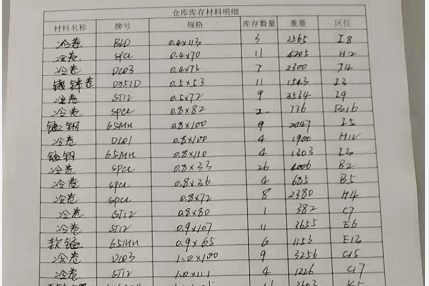 仓库库存材料明细
材料名称 牌号 规格 库存数量 重量 区位
冷卷 BLD 0.4×113 3 2365 I8
冷卷 SPCC 0.4×70 11 4205 H2
冷卷 DC03 0.4×73 7 2300 J4
镀锌卷 DX51D 0.5×53 11 1543 I3
冷卷 ST12 0.5×72 9 2534 I9
冷卷 SPCC 0.8×82 2 736 B016
锰钢 65Mn 0.8×100 9 2047 I5
冷卷 DC01 0.8×100 4 1900 H12
锰钢 65Mn 0.8×110 4 1303 I3
冷卷 SPCC 0.8×33 26 4006 B2
冷卷 SPCC 0.8×36 4 685 B5
冷卷 SPCC 0.8×72 8 2380 H4
冷卷 ST12 0.8×80 1 382 C7
冷卷 ST12 0.9×107 11 3655 E6
软锰 65Mn 0.9×65 6 1153 E13
冷卷 DC03 1.0×100 9 3256 C15
冷卷 ST12 1.0×111 4 1226 C17